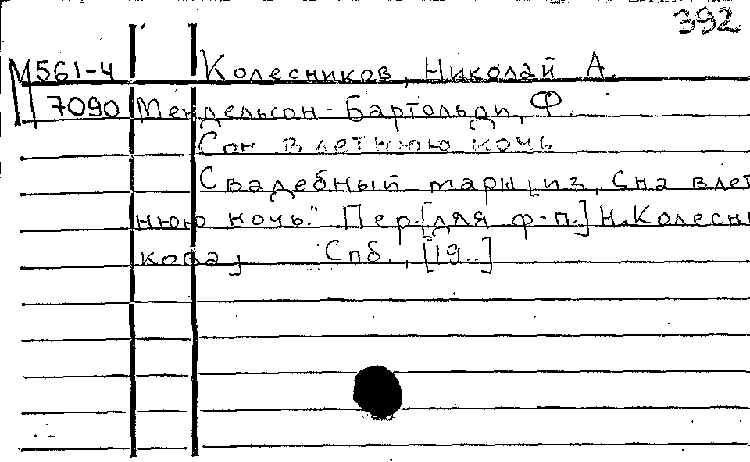 392
М561-4 Колесников, Николай А.
7090 Мендельсон-Бартольди, Ф.
Сон в летнюю ночь
Свадебный марш из „Сна в лет
нюю ночь." Пер. [для ф-п.] Н. Колесни
кова; Спб., [19..]